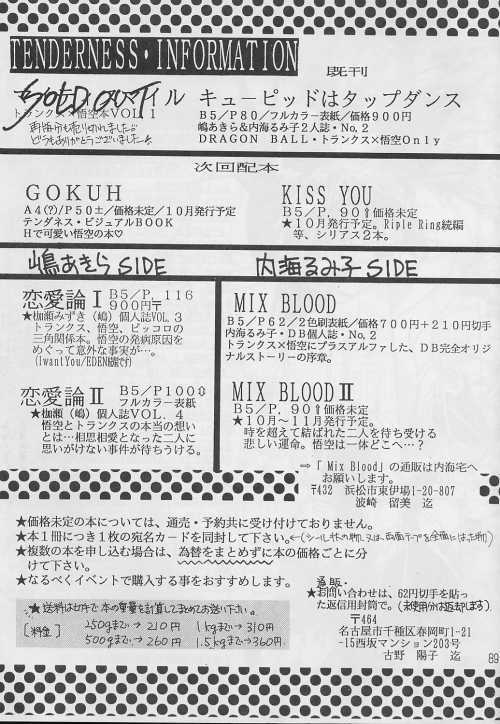 TENDERNESS・INFORMATION
既刊
SOLD OUT
イル
トランクス×悟空本VOL.1
再販分も売り切れました
どうもありがとうございました
キューピッドはタップダンス
B5/P80/フルカラー表紙/価格900円
嶋あきら&内海るみ子2人誌・No.2
DRAGON BALL・トランクス×悟空Only
次回配本
GOKUH
A4(?)/P50±/価格未定/10月発行予定
テンダネス・ビジュアルBOOK
Hで可愛い悟空の本♡
KISS YOU
B5/P.90⇧価格未定
★10月発行予定。Riple Ring続編
等、シリアス2本。
嶋あきらSIDE
内海るみ子SIDE
恋愛論Ⅰ B5/P.116
900円〒
★枷瀬みずき(嶋)個人誌VOL.3
トランクス、悟空、ピッコロの
三角関係本。悟空の発病原因を
めぐって意外な事実が…。
(IwantYou/EDEN続篇です)
恋愛論Ⅱ B5/P100⇕
フルカラー表紙
★枷瀬(嶋)個人誌VOL.4
悟空とトランクスの本当の想い
とは…相思相愛となった二人に
思いがけない事件が待ちうける。
MIX BLOOD
B5/P62/2色刷表紙/価格700円+210円切手
内海るみ子・DB個人誌
トランクス×悟空にプラスアルファした、DB完全オリジ
ナルストーリーの序章。
MIX BLOODⅡ
B5/P.90⇧価格未定
★10月~11月発行予定。
時を超えて結ばれた二人を待ち受ける
悲しい運命。悟空は一体どこへ…?
⇒「Mix Blood」の通販は内海宅へ
お願いします。
〒432 浜松市東伊場1-20-807
波崎 留美 迄
★価格未定の本については、通売・予約共に受け付けておりません。
★本1冊につき1枚の宛名カードを同封して下さい。←(シール式の物、又は両面テープを全面にはった物)
★複数の本を申し込む場合は、為替をまとめずに本の価格ごとに分
けて下さい。
★なるべくイベントで購入する事をおすすめします。
★送料は切手で本の重量を計算してまとめてお送り下さい。
[料金] 250gまで→210円 1kgまで→310円
500gまで→260円 1.5kgまで→360円
通販・
★お問い合わせは、62円切手を貼っ
た返信用封筒で。(未使用分は返却します)
〒464
名古屋市千種区春岡町1-21
-15西坂マンション203号
古野 陽子 迄
89